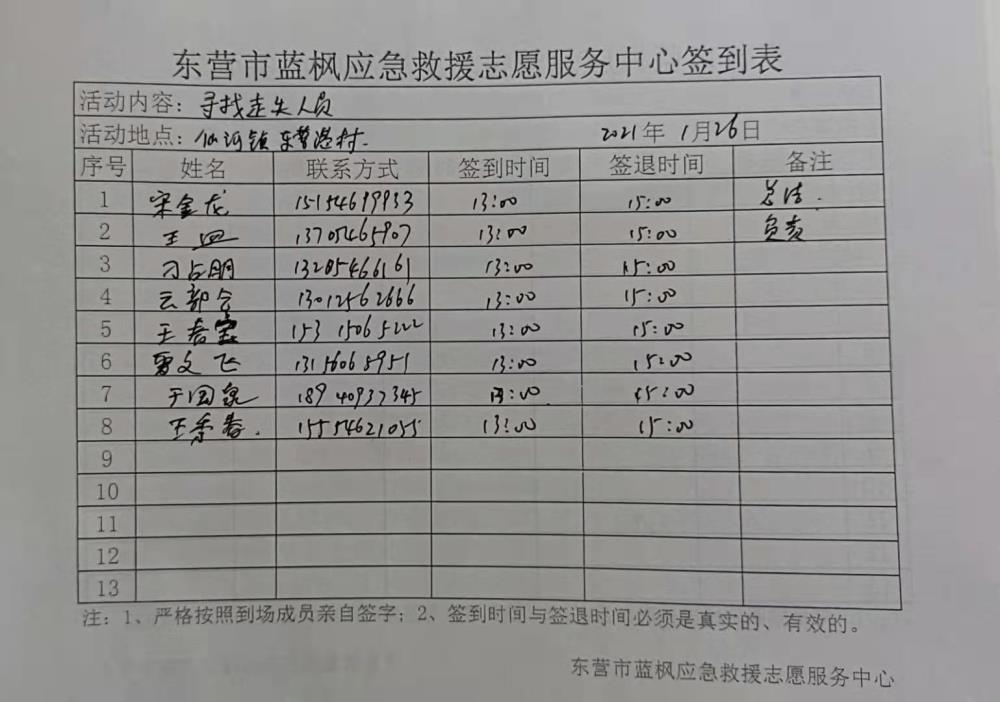 东营市蓝枫应急救援志愿服务中心签到表
活动内容：寻找走失人员
活动地点：仙河镇东营港村. 2021年1月26日
序号 姓名 联系方式 签到时间 签退时间 备注
1 宋金龙 15154699933 13:00 15:00 总结.
2 王 13705465907 13:00 15:00 负责
3 刁占朋 13205466161 13:00 15:00
4 13012562666 13:00 15:00
5 王春宝 153 15065222 13:00 15:00
6 文飞 13:00 15:00
7 于国泉 189 40937345 13:00 15:00
8 王秀春. 15554621055 13:00 15:00
9
10
11
12
13
注：1、严格按照到场成员亲自签字；2、签到时间与签退时间必须是真实的、有效的。
东营市蓝枫应急救援志愿服务中心